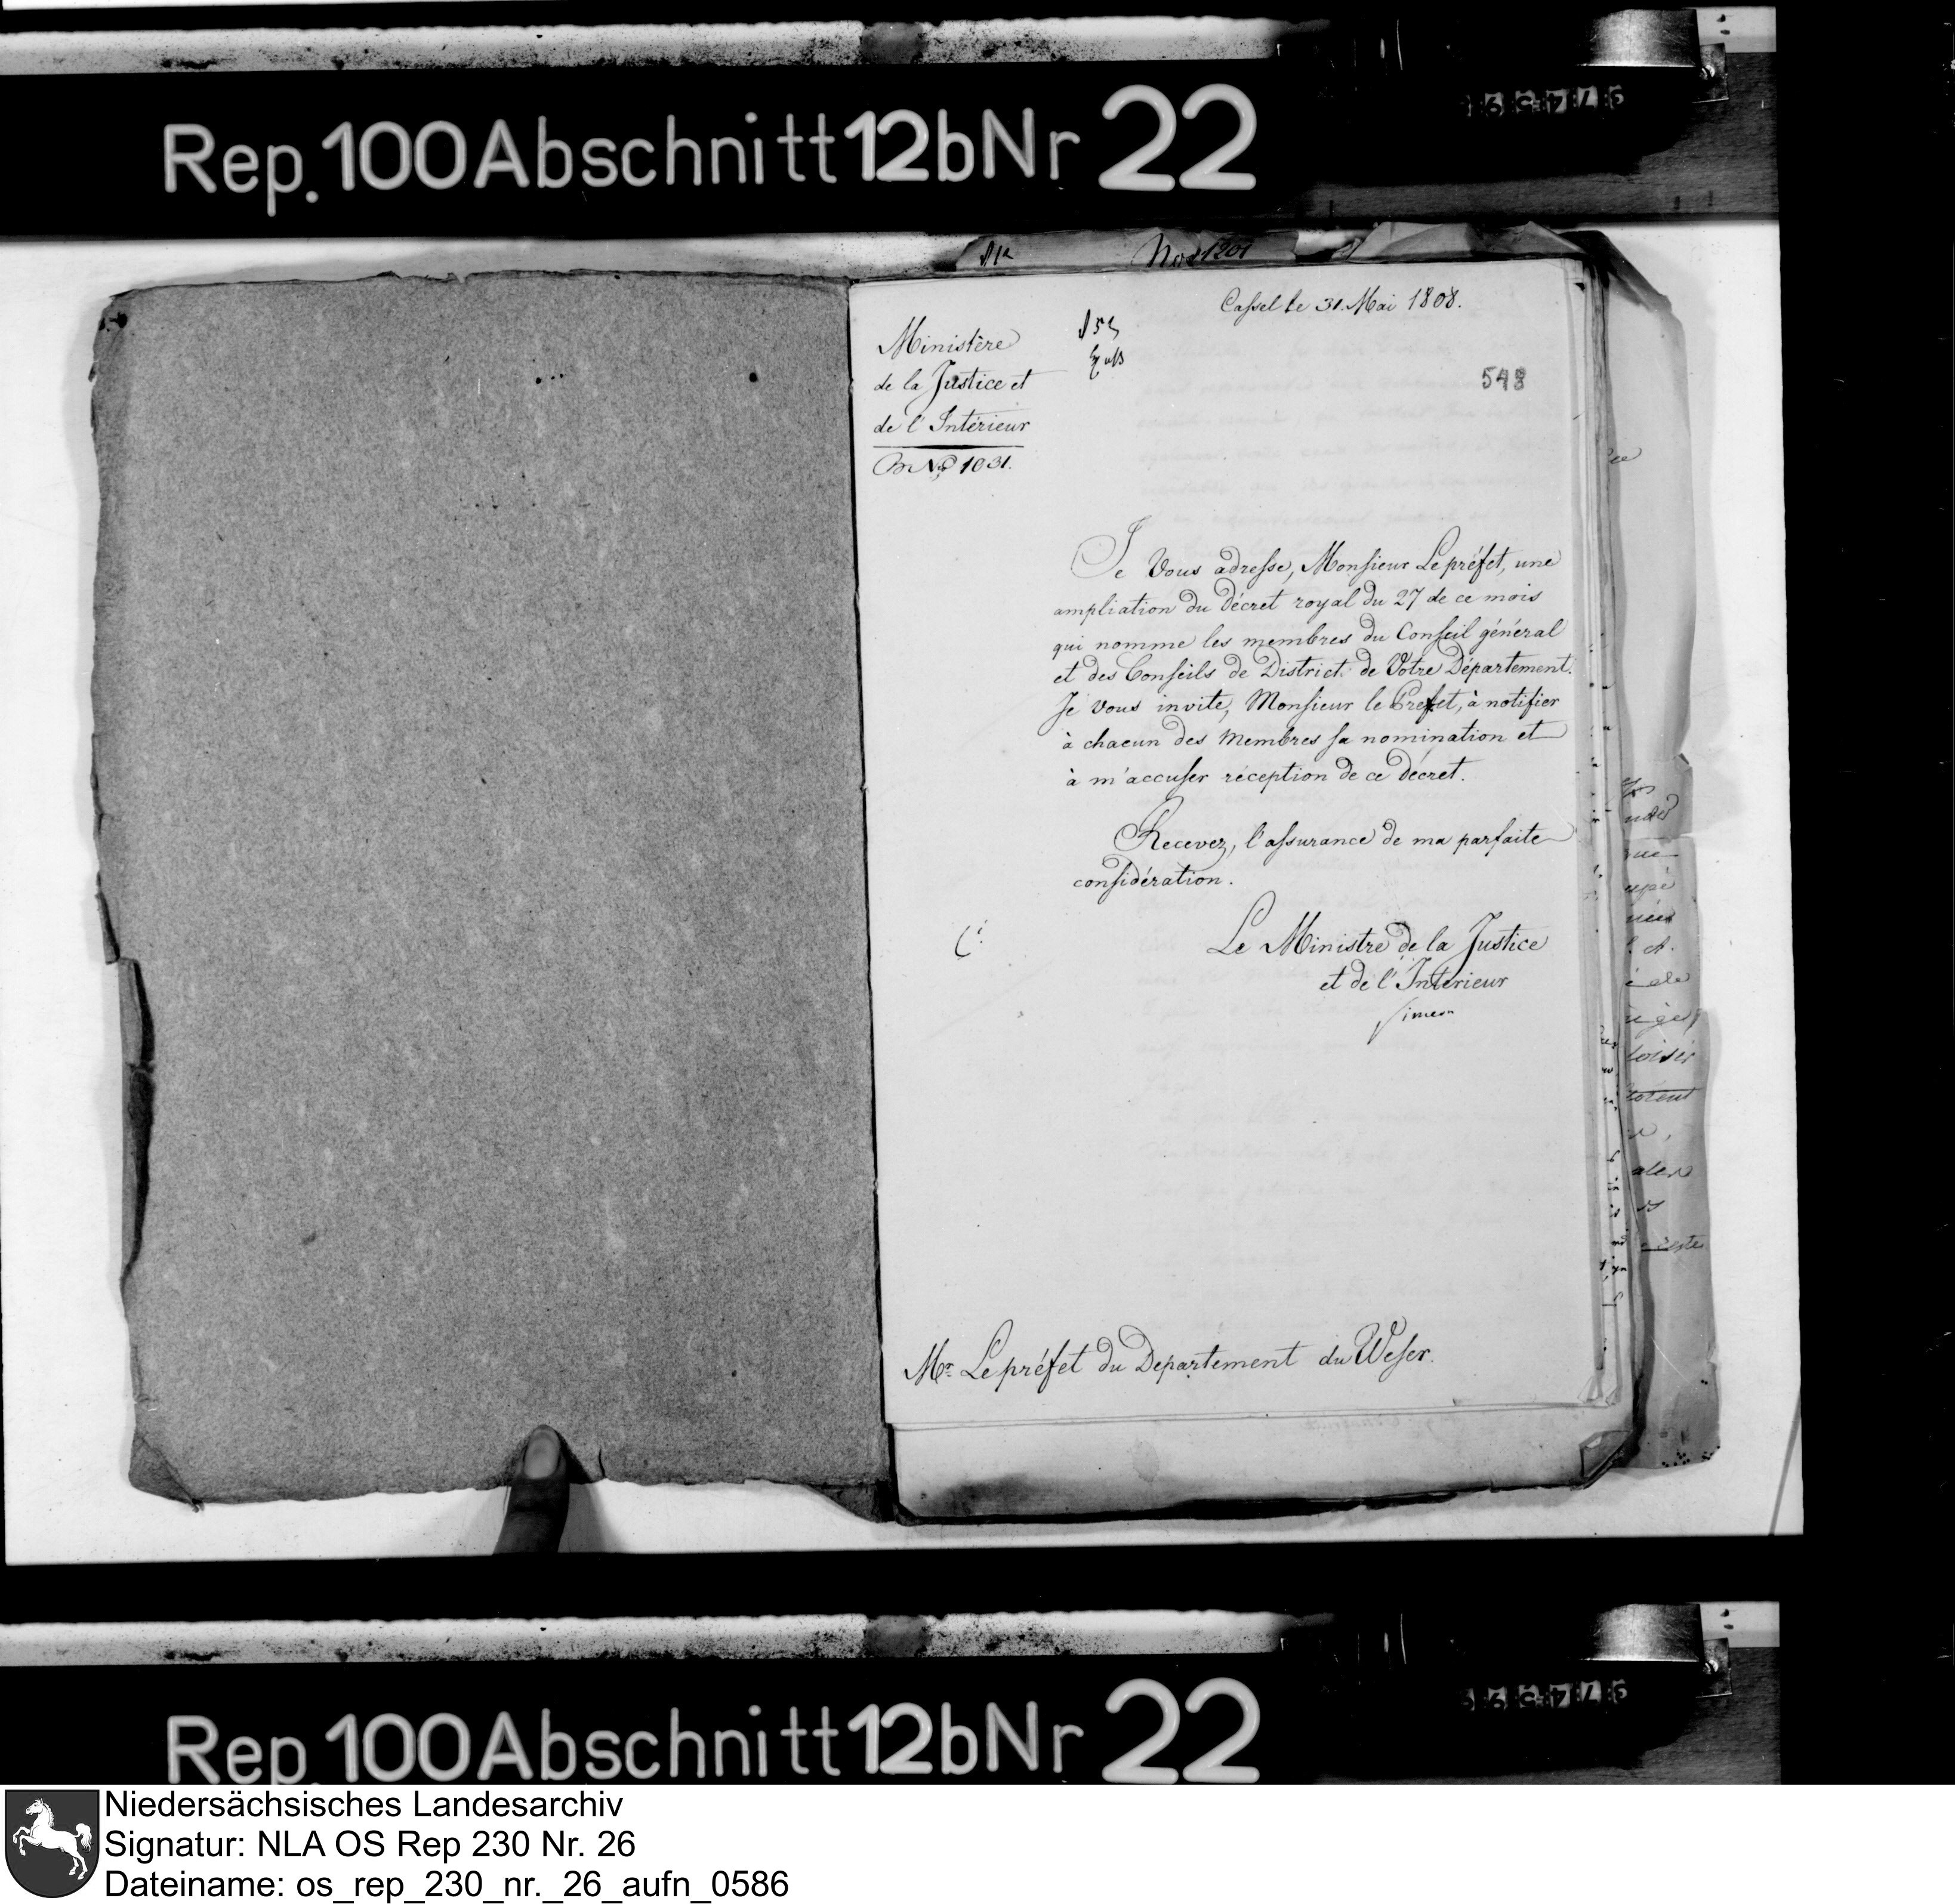 Rep. 100 Abschnitt 12b Nr 22
1201
Cassel le 31. Mai 1808.
Ministère
de la Justice et
de l'Intérieur
No 1031.
548
Je Vous adresse, Monsieur Le préfet, une
ampliation du Décret royal du 27 de ce mois
qui nomme les membres du Conseil général
et des Conseils de District de Votre Département.
Je vous invite, Monsieur le Prefet, à notifier
à chacun des Membres sa nomination et
à m'accuser réception de ce Décret.
Recevez, l'assurance de ma parfaite
considération.
Le Ministre de la Justice
et de l'Interieur
Simeon
Mr. Le préfet du Departement du Weser.
Rep. 100 Abschnitt 12b Nr 22
Niedersächsisches Landesarchiv
Signatur: NLA OS Rep 230 Nr. 26
Dateiname: os_rep_230_nr._26_aufn_0586